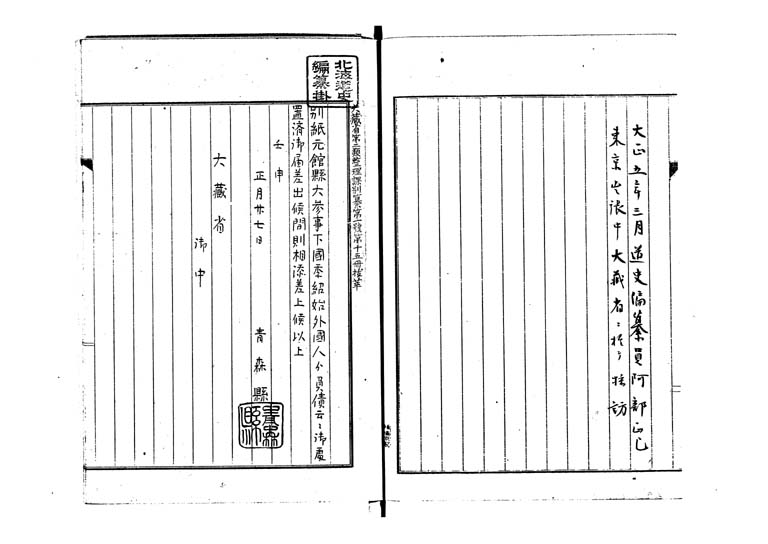 大正五年三月道史編纂員阿部正己
東京出張中大蔵省ニ於テ採訪
北海道史
編纂掛
大蔵省第二類整理課判理簿第一種第十五冊抜萃
別紙元館縣大参事下國季紹始外國人ゟ負債云々御處
置済御届差出候間則相添差上候以上
壬申
正月廿七日
青森縣
大藏省
御中